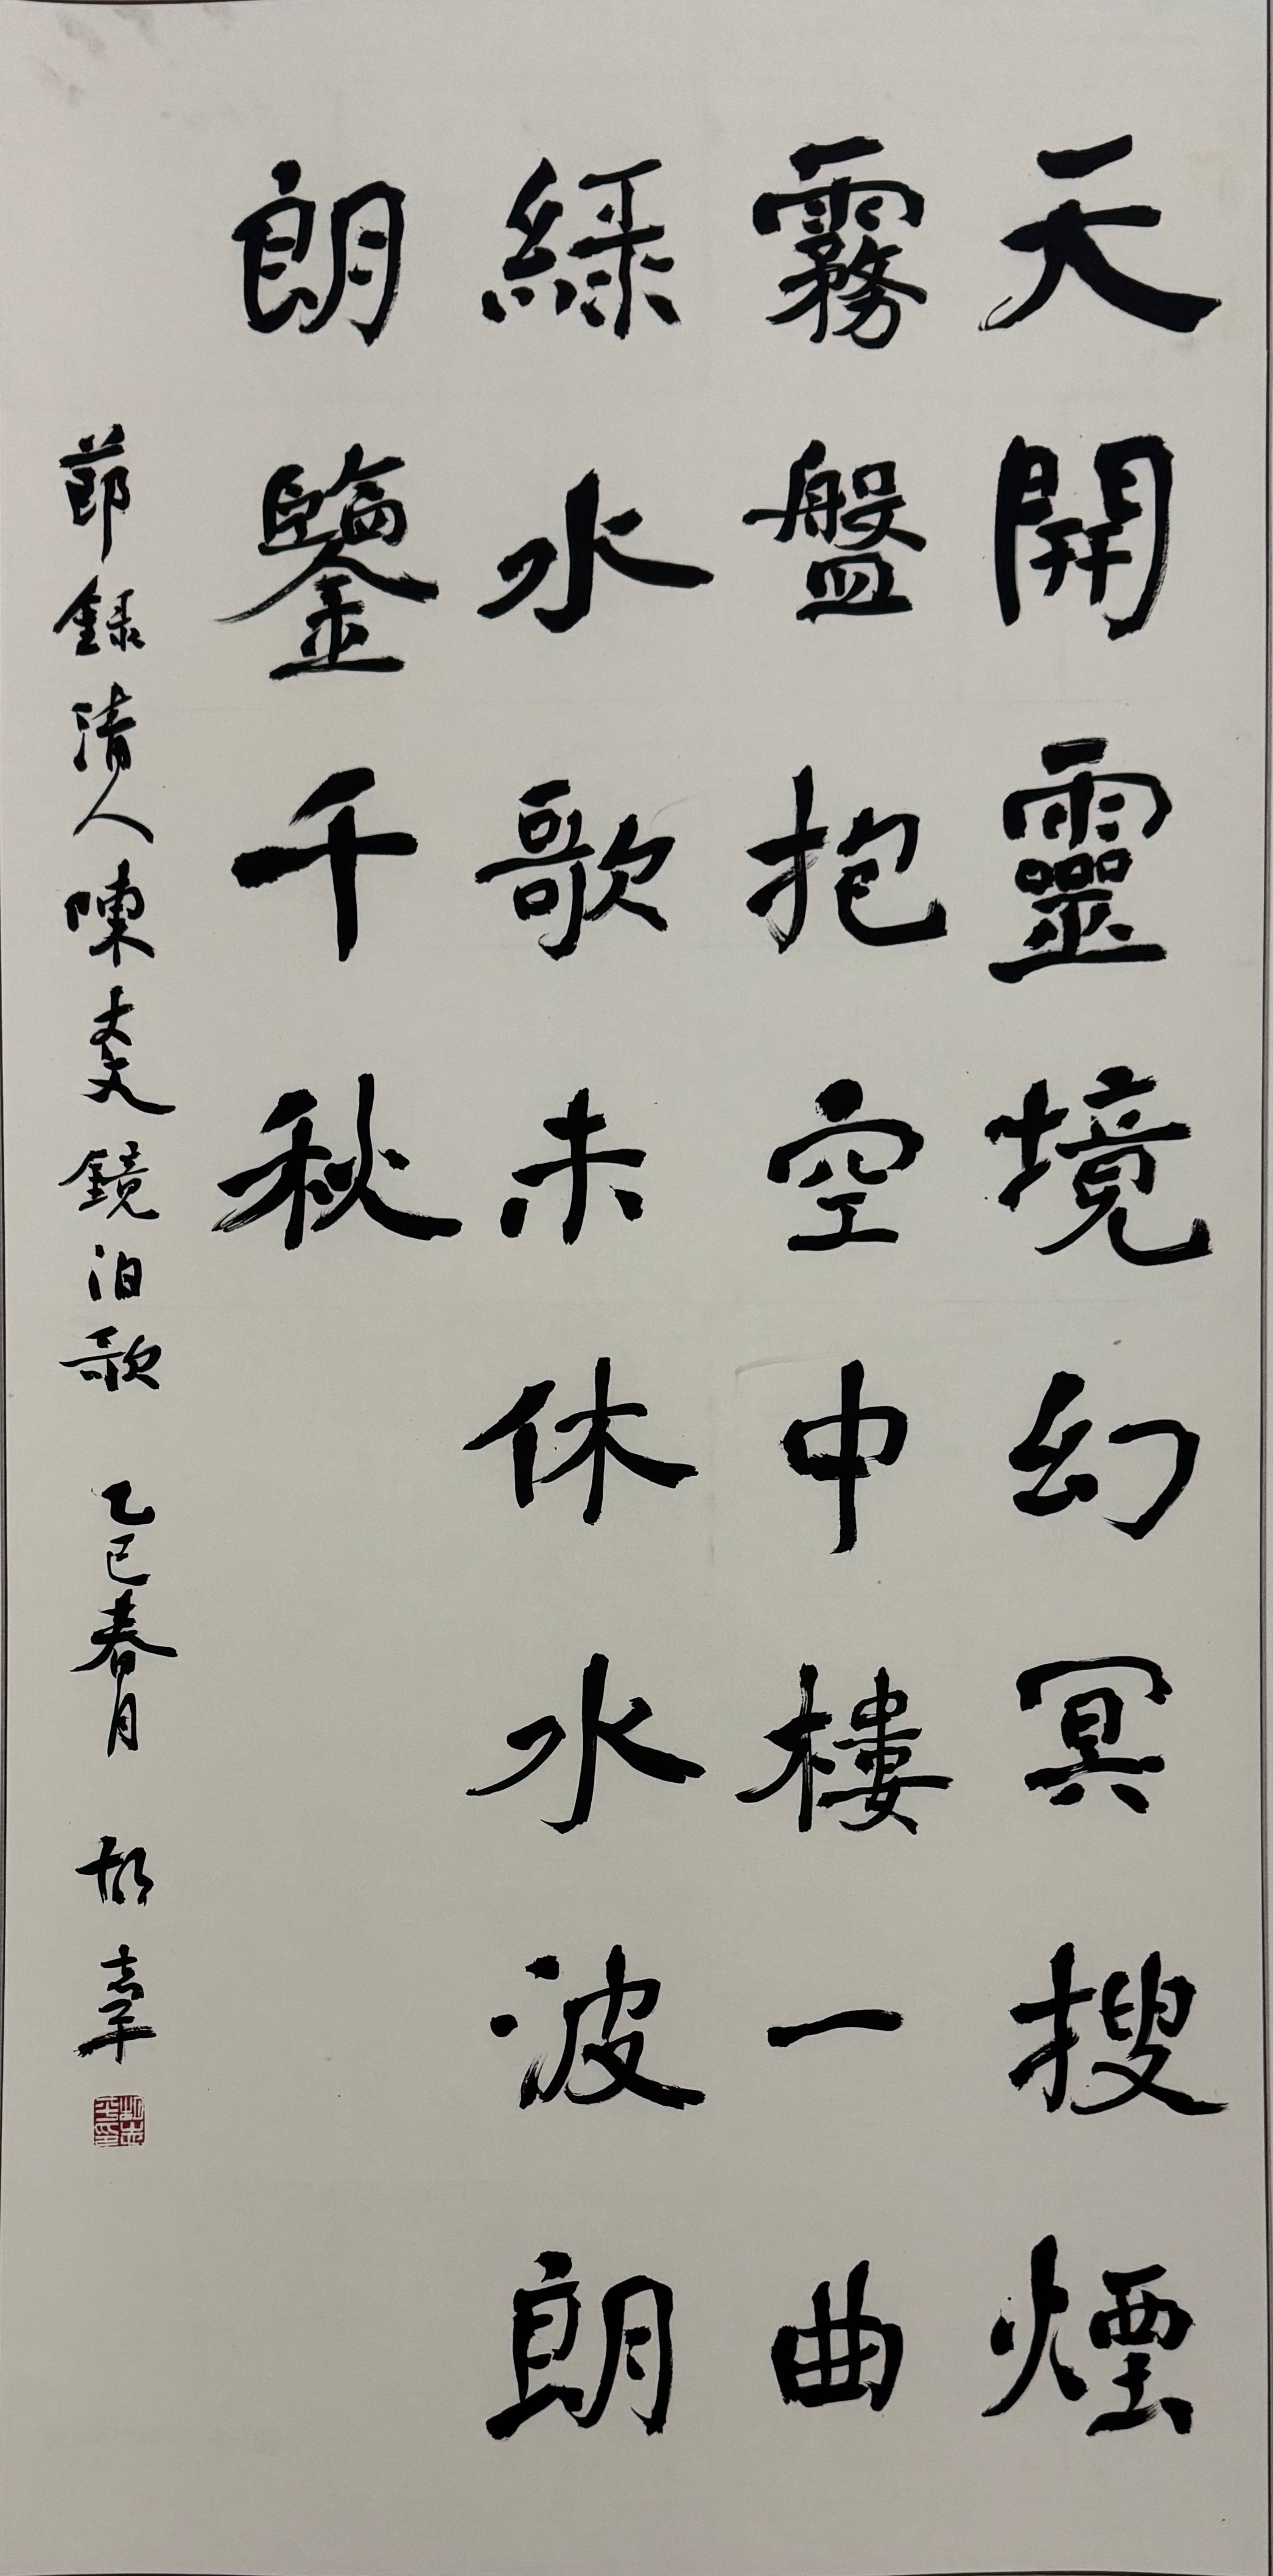 天開靈境幻冥搜煙
霧盤抱空中樓一曲
綠水歌未休水波朗
朗鑒千秋
節錄清人陳 鏡泊歌 乙巳春月 胡志平